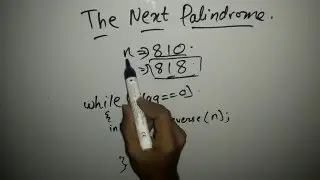 The Next Palindrome.
n ⇒ 810
⇒ 818
while ==0]
{
in verse(n);
}